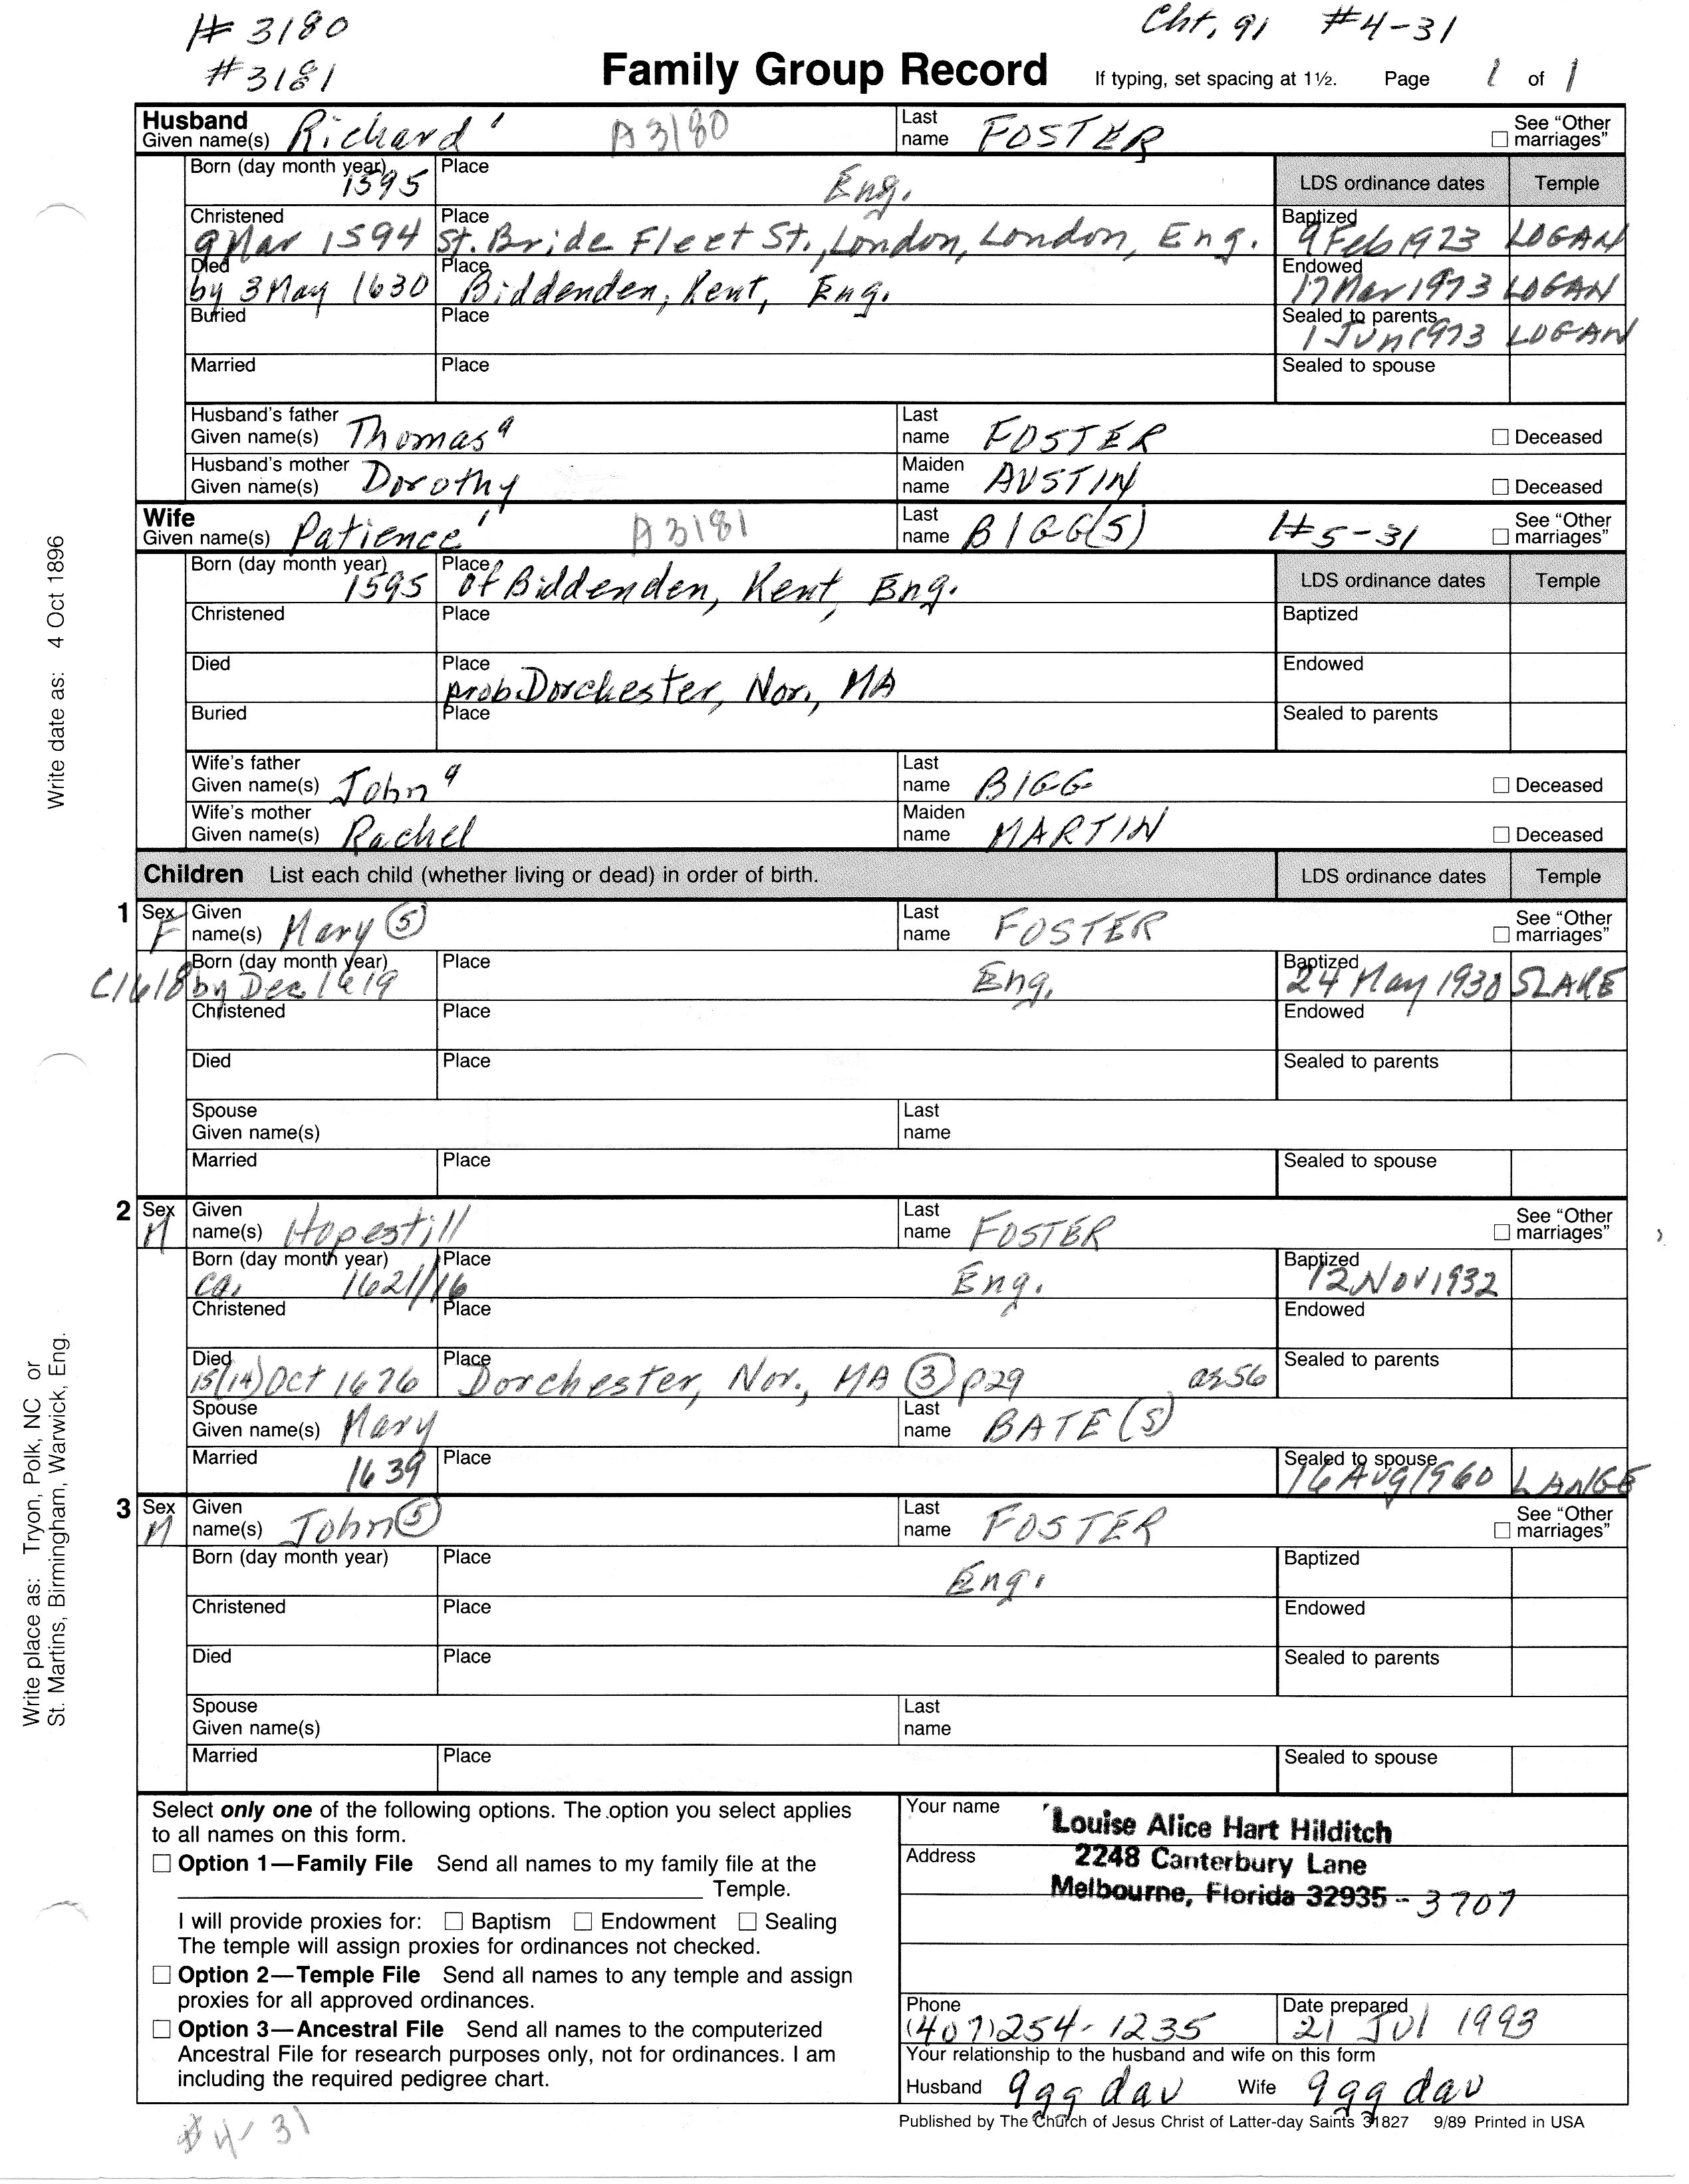 # 3180 Cht, 91 #4-31
#3181
Family Group Record If typing, set spacing at 1½. Page 1 of 1
Husband
Given name(s) Richard A3180 Last name FOSTER See "Other marriages"
Born (day month year) 1595 Place Eng. LDS ordinance dates Temple
Christened 9 Mar 1594 Place St. Bride Fleet St., London, London, Eng. Baptized 9 Feb 1923 LOGAN
Died by 3 May 1630 Place Biddenden, Kent, Eng. Endowed 17 Mar 1973 LOGAN
Buried Place Sealed to parents 1 Jun 1973 LOGAN
Married Place Sealed to spouse
Husband's father
Given name(s) Thomas Last name FOSTER Deceased
Husband's mother
Given name(s) Dorothy Maiden name AUSTIN Deceased
Wife
Given name(s) Patience A3181 Last name BIGG(S) #5-31 See "Other marriages"
Born (day month year) 1595 Place of Biddenden, Kent, Eng. LDS ordinance dates Temple
Christened Place Baptized
Died Place prob. Dorchester, Nor., MA Endowed
Buried Place Sealed to parents
Wife's father
Given name(s) John Last name BIGG Deceased
Wife's mother
Given name(s) Rachel Maiden name MARTIN Deceased
Children List each child (whether living or dead) in order of birth. LDS ordinance dates Temple
1 Sex F Given name(s) Mary (5) Last name FOSTER See "Other marriages"
C1618 Born (day month year) by Dec 1619 Place Eng. Baptized 24 May 1930 SLAKE
Christened Place Endowed
Died Place Sealed to parents
Spouse
Given name(s) Last name
Married Place Sealed to spouse
2 Sex M Given name(s) Hopestill Last name FOSTER See "Other marriages"
Born (day month year) ca. 1621//16 Place Eng. Baptized 12 Nov 1932
Christened Place Endowed
Died 15(14) Oct 1676 Place Dorchester, Nor., MA (3) p29 ae 56 Sealed to parents
Spouse
Given name(s) Mary Last name BATE(S)
Married 1639 Place Sealed to spouse 16 Aug 1960 LANGE
3 Sex M Given name(s) John (5) Last name FOSTER See "Other marriages"
Born (day month year) Place Eng. Baptized
Christened Place Endowed
Died Place Sealed to parents
Spouse
Given name(s) Last name
Married Place Sealed to spouse
Select only one of the following options. The option you select applies
to all names on this form.
Option 1—Family File Send all names to my family file at the
Temple.
I will provide proxies for: Baptism Endowment Sealing
The temple will assign proxies for ordinances not checked.
Option 2—Temple File Send all names to any temple and assign
proxies for all approved ordinances.
Option 3—Ancestral File Send all names to the computerized
Ancestral File for research purposes only, not for ordinances. I am
including the required pedigree chart.
Your name Louise Alice Hart Hilditch
Address 2248 Canterbury Lane
Melbourne, Florida 32935-3707
Phone (407)254-1235 Date prepared 21 Jul 1993
Your relationship to the husband and wife on this form
Husband 9gg dau Wife 9gg dau
Published by The Church of Jesus Christ of Latter-day Saints 31827 9/89 Printed in USA
#4-31
Write date as: 4 Oct 1896
Write place as: Tryon, Polk, NC or
St. Martins, Birmingham, Warwick, Eng.